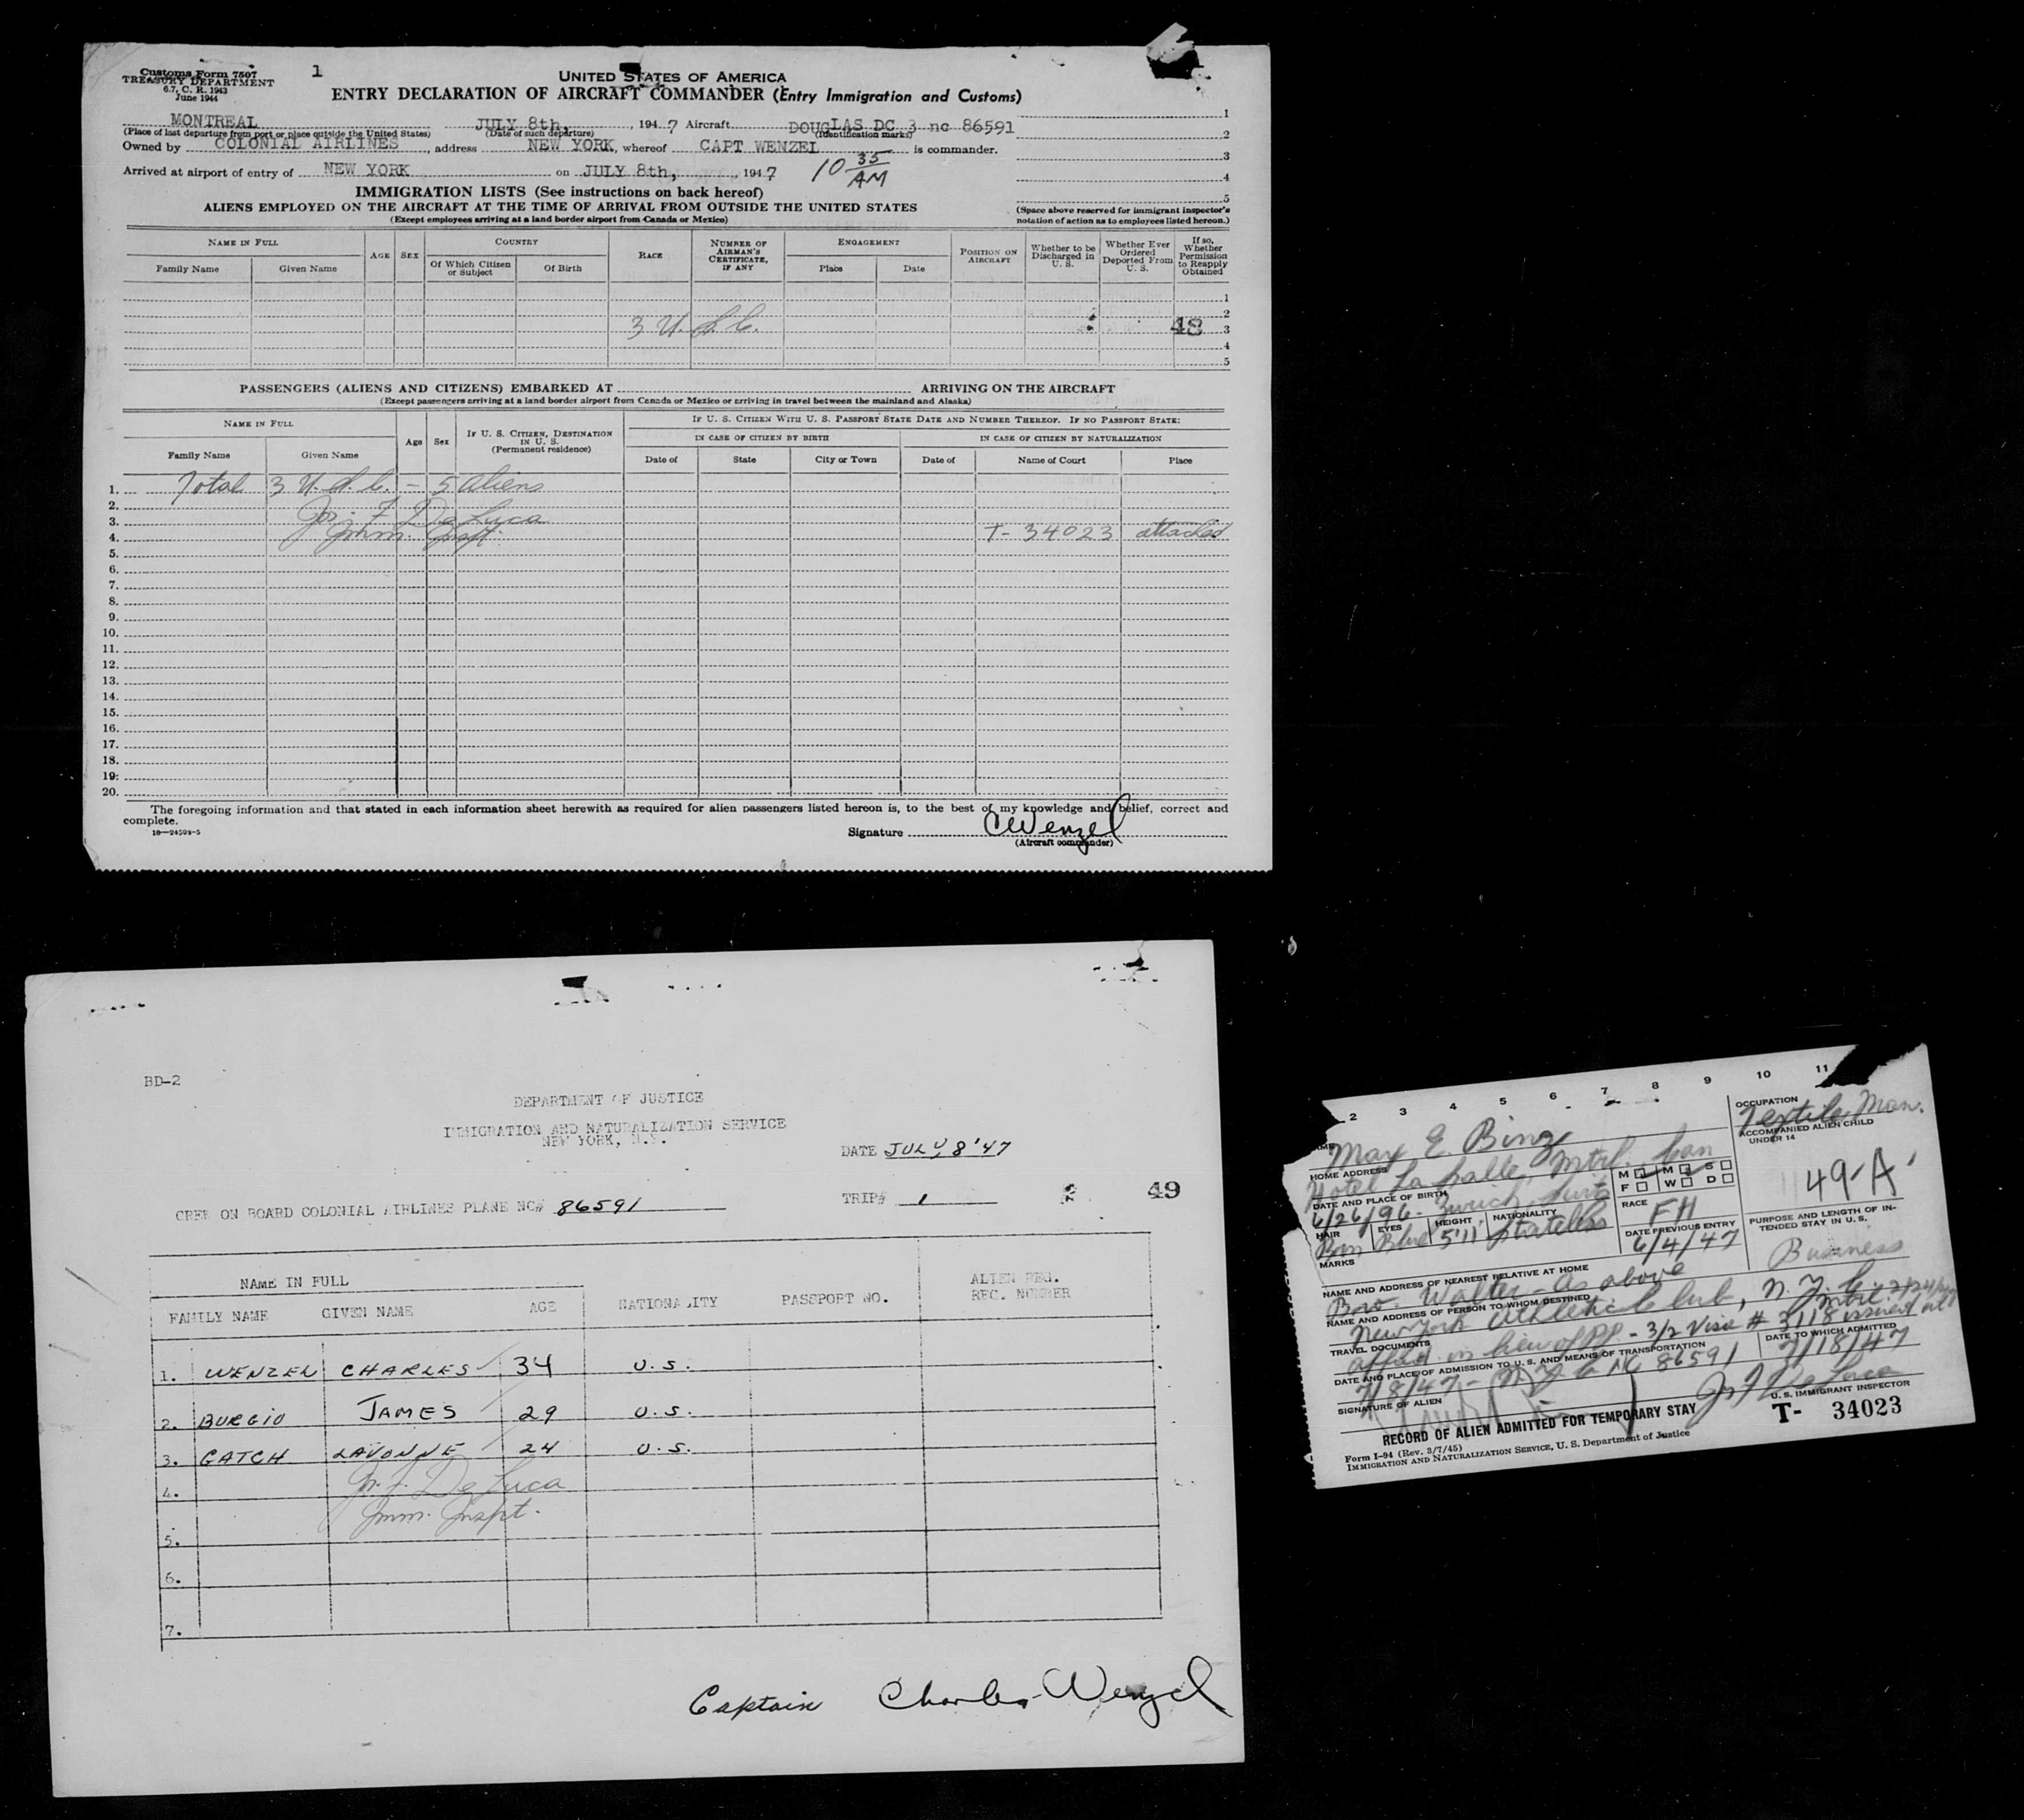 Customs Form 7507
TREASURY DEPARTMENT
6.7, C. R. 1943
June 1944
1
UNITED STATES OF AMERICA
ENTRY DECLARATION OF AIRCRAFT COMMANDER (Entry Immigration and Customs)
MONTREAL JULY 8th, , 194 7 Aircraft DOUGLAS DC 3 nc 86591
(Place of last departure from port or place outside the United States) (Date of such departure) (Identification marks)
Owned by COLONIAL AIRLINES , address NEW YORK, whereof CAPT WENZEL is commander.
Arrived at airport of entry of NEW YORK on JULY 8th, , 194 7 10 35 AM
1
2
3
4
5
IMMIGRATION LISTS (See instructions on back hereof)
ALIENS EMPLOYED ON THE AIRCRAFT AT THE TIME OF ARRIVAL FROM OUTSIDE THE UNITED STATES
(Except employees arriving at a land border airport from Canada or Mexico)
(Space above reserved for immigrant inspector's notation of action as to employees listed hereon.)
NAME IN FULL AGE SEX COUNTRY RACE NUMBER OF AIRMAN'S CERTIFICATE, IF ANY ENGAGEMENT POSITION ON AIRCRAFT Whether to be Discharged in U. S. Whether Ever Ordered Deported From U. S. If so, Whether Permission to Reapply Obtained
Family Name Given Name Of Which Citizen or Subject Of Birth Place Date
1
2
3 U.S.C. 48 3
4
5
PASSENGERS (ALIENS AND CITIZENS) EMBARKED AT ARRIVING ON THE AIRCRAFT
(Except passengers arriving at a land border airport from Canada or Mexico or arriving in travel between the mainland and Alaska)
NAME IN FULL Age Sex IF U. S. CITIZEN, DESTINATION IN U. S. (Permanent residence) IF U. S. CITIZEN WITH U. S. PASSPORT STATE DATE AND NUMBER THEREOF. IF NO PASSPORT STATE:
IN CASE OF CITIZEN BY BIRTH IN CASE OF CITIZEN BY NATURALIZATION
Family Name Given Name Date of State City or Town Date of Name of Court Place
1. Total 3 U.S.C. - 5 aliens
2.
3. Jos. F. De Luca
4. Imm. Inspt. T- 34023 attached
5.
6.
7.
8.
9.
10.
11.
12.
13.
14.
15.
16.
17.
18.
19.
20.
The foregoing information and that stated in each information sheet herewith as required for alien passengers listed hereon is, to the best of my knowledge and belief, correct and
complete.
16—24502-5
Signature C Wenzel
(Aircraft commander)
BD-2
DEPARTMENT OF JUSTICE
IMMIGRATION AND NATURALIZATION SERVICE
NEW YORK, N.Y.
DATE JULY 8 '47
TRIP# 1 49
CREW ON BOARD COLONIAL AIRLINES PLANE NC# 86591
NAME IN FULL ALIEN REG.
FAMILY NAME GIVEN NAME AGE NATIONALITY PASSPORT NO. REC. NUMBER
1. WENZEL CHARLES 34 U.S.
2. BURGIO JAMES 29 U.S.
3. GATCH LAVONNE 24 U.S.
4. Jos. F. De Luca
Imm. Inspt.
5.
6.
7.
Captain Charles Wenzel
2 3 4 5 6 7 8 9 10 11
Max E. Binz
OCCUPATION
Textile Man.
HOME ADDRESS
Hotel La Salle, Mtrl. Can
ACCOMPANIED ALIEN CHILD UNDER 14
49-A
DATE AND PLACE OF BIRTH
6/26/96 - Zurich, Switz
M F M W S D
RACE
FH
HAIR EYES HEIGHT NATIONALITY
Brn Blue 5'11 Stateless
DATE PREVIOUS ENTRY
6/4/47
PURPOSE AND LENGTH OF INTENDED STAY IN U. S.
Business
MARKS
NAME AND ADDRESS OF NEAREST RELATIVE AT HOME
Bro. Walter - as above
NAME AND ADDRESS OF PERSON TO WHOM DESTINED
New York Athletic Club, N.Y.C.
TRAVEL DOCUMENTS
affid. in lieu of PP - 3/2 Visa # 3118 issued at Mtrl.
DATE AND PLACE OF ADMISSION TO U. S. AND MEANS OF TRANSPORTATION
7/8/47 - N.Y.C NC 86591
DATE TO WHICH ADMITTED
7/18/47
SIGNATURE OF ALIEN
Jos F De Luca
U. S. IMMIGRANT INSPECTOR
RECORD OF ALIEN ADMITTED FOR TEMPORARY STAY
T- 34023
Form I-94 (Rev. 3/7/45)
IMMIGRATION AND NATURALIZATION SERVICE, U. S. Department of Justice